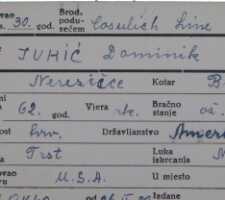 30. god. Brod. podu- Cosulich Line
zećem
JURIĆ Dominik
Nerežišće Kotar B
62. god. Vjera rk. Bračno ož.
stanje
ost Hrv. Državljanstvo Amer
Trst Luka
iskrcanja N
U.S.A. U mjesto
Izdane